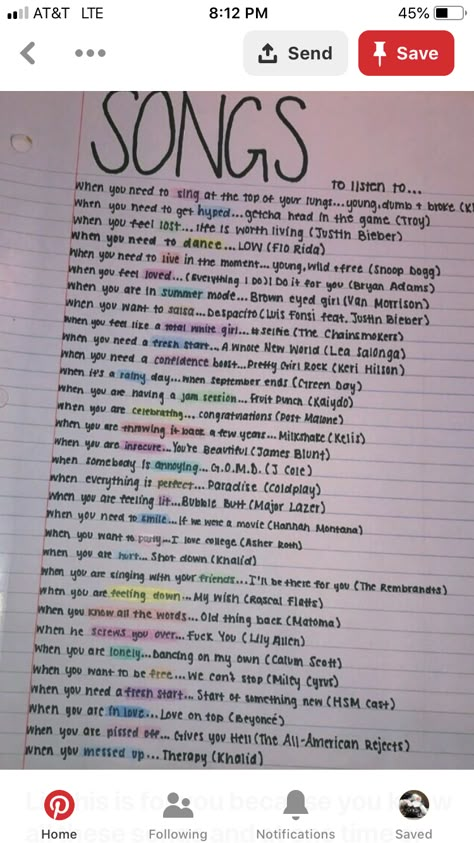 AT&T LTE 8:12 PM 45%
Send Save
SONGS
TO LISTEN TO...
when you need to sing at the top of your lungs...young, dumb + broke (K
when you need to get hyped...getcha head in the game (Troy)
when you feel lost...life is worth living (Justin Bieber)
when you need to dance... LOW (Flo Rida)
when you need to live in the moment... young, wild + free (Snoop Dogg)
when you feel loved...(Everything I Do) I Do it for you (Bryan Adams)
when you are in summer mode... Brown eyed girl (Van Morrison)
when you want to salsa... Despacito (Luis Fonsi feat. Justin Bieber)
when you feel like a total white girl...#selfie (The Chainsmokers)
when you need a fresh start...A Whole New World (Lea Salonga)
when you need a confidence boost...Pretty Girl Rock (Keri Hilson)
when it's a rainy day...When September ends (Green Day)
when you are having a jam session... Fruit Punch (Kaiydo)
when you are celebrating... congratulations (Post Malone)
when you are throwing it back a few years... Milkshake (Kelis)
when you are insecure...You're Beautiful (James Blunt)
when somebody is annoying... G.O.M.D. (J Cole)
when everything is perfect... Paradise (Coldplay)
when you are feeling lit...Bubble Butt (Major Lazer)
when you need to smile...If we were a movie (Hannah Montana)
when you want to party...I love college (Asher Roth)
when you are hurt... Shot down (Khalid)
when you are singing with your friends...I'll be there for you (The Rembrandts)
when you are feeling down...My Wish (Rascal Flatts)
when you know all the words...Old thing back (Matoma)
when he screws you over...Fuck You (Lily Allen)
when you are lonely...Dancing on my own (Calum Scott)
when you want to be free... We can't stop (Miley Cyrus)
when you need a fresh start... Start of something new (HSM Cast)
when you are in love... Love on top (Beyoncé)
when you are pissed off...Gives you Hell (The All-American Rejects)
when you messed up... Therapy (Khalid)
Home Following Notifications Saved